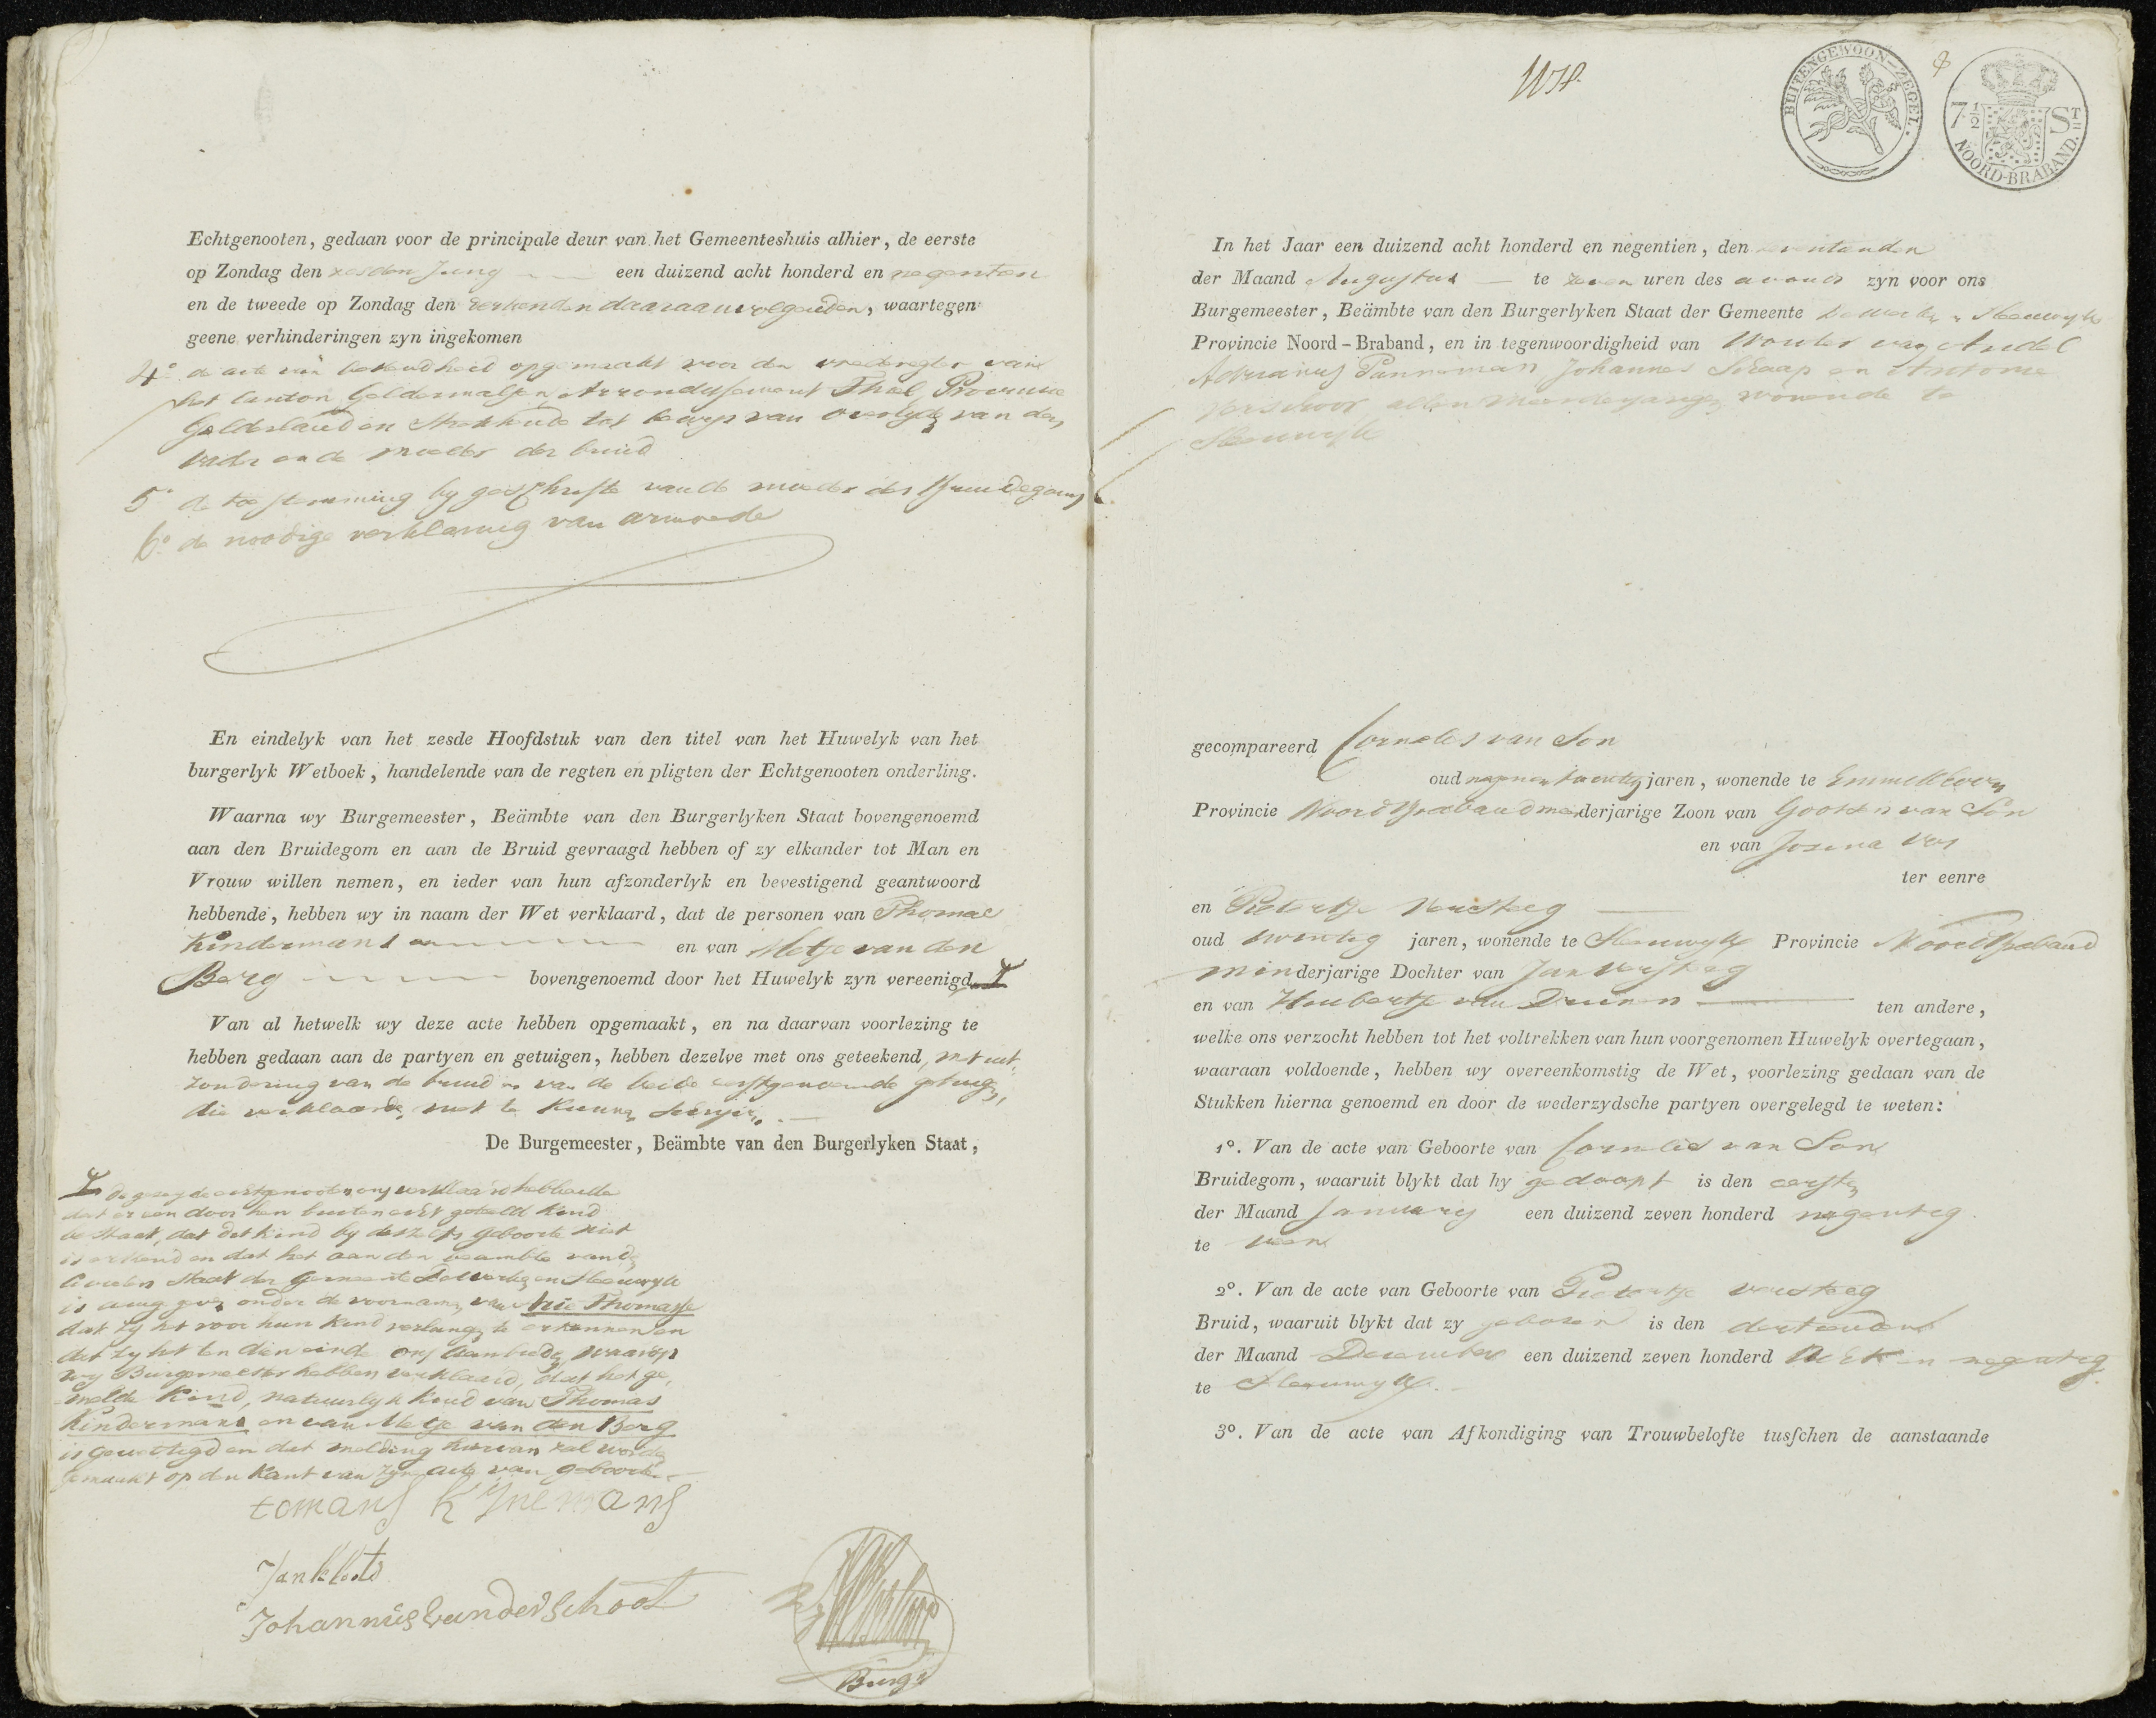 Echtgenooten, gedaan voor de principale deur van het Gemeenteshuis alhier, de eerste
op Zondag den zesden Juny een duizend acht honderd en negentien
en de tweede op Zondag den dertienden daaraanvolgenden, waartegen
geene verhinderingen zyn ingekomen
4° de acte van bekendheid opgemaakt voor den vrederegter van
het Canton Geldermalsen Arrondissement Thiel, Provincie
Gelderland en Strekkende tot bewys van overlyden van den
vader en de moeder der bruid
5° de toestemming by geschrifte van de moeder des Bruidegoms
6° de noodige verklaring van armoede
En eindelyk van het zesde Hoofdstuk van den titel van het Huwelyk van het
burgerlyk Wetboek, handelende van de regten en pligten der Echtgenooten onderling.
Waarna wy Burgemeester, Beämbte van den Burgerlyken Staat bovengenoemd
aan den Bruidegom en aan de Bruid gevraagd hebben of zy elkander tot Man en
Vrouw willen nemen, en ieder van hun afzonderlyk en bevestigend geantwoord
hebbende, hebben wy in naam der Wet verklaard, dat de personen van Thomas
Kindermans en van Metje van den
Berg bovengenoemd door het Huwelyk zyn vereenigd
Van al hetwelk wy deze acte hebben opgemaakt, en na daarvan voorlezing te
hebben gedaan aan de partyen en getuigen, hebben dezelve met ons geteekend, met uit-
zondering van de bruid en van de beide eerstgenoemde getuigen,
die verklaarden niet te kunnen schryven
De Burgemeester, Beämbte van den Burgerlyken Staat,
de gezegde echtgenooten ons verklaard hebbende
dat er een door hen buiten echt geteeld kind
bestaat, dat dit kind by deszelfs geboorte niet
is erkend en dat het aan den beambte van den
Civielen Staat der Gemeente Dewerken en Sleeuwyk
is aangegeven onder de voornamen van Arie Thomasse
dat zy het voor hun kind verlangen te erkennen en
dat zy het ten dien einde ons aanbieden, waarop
wy Burgemeester hebben verklaard, dat het ge-
melde Kind, natuurlyk kind van Thomas
Kindermans en van Metje van den Berg
is gewettigd en dat melding hiervan zal worden
gemaakt op den kant van zyn acte van geboorte
tomans Kynemans
Jan
Johannis van der Schoot
Burgr
BUITENGEWOON-ZEGEL.
7 1/2 ST
NOORD-BRABAND.
In het Jaar een duizend acht honderd en negentien, den
der Maand Augustus te zeven uren des avonds zyn voor ons
Burgemeester, Beämbte van den Burgerlyken Staat der Gemeente Dewerken Sleeuwyk
Provincie Noord-Braband, en in tegenwoordigheid van Wouter van Andel
Adrianus Pannoman, Johannes Schaap en Antonie
Verschoor allen meerderjarig, wonende te
Sleeuwyk
gecompareerd Cornelis van Son
oud negenentwintig jaren, wonende te Emmikhoven
Provincie Noord Braband meerderjarige Zoon van Goosen van Son
en van Josina Vos
ter eenre
en Pietertje Versteeg
oud twintig jaren, wonende te Sleeuwyk Provincie Noord Braband
minderjarige Dochter van Jan Versteeg
en van Huibertje van Drunen ten andere,
welke ons verzocht hebben tot het voltrekken van hun voorgenomen Huwelyk overtegaan,
waaraan voldoende, hebben wy overeenkomstig de Wet, voorlezing gedaan van de
Stukken hierna genoemd en door de wederzydsche partyen overgelegd te weten:
1°. Van de acte van Geboorte van Cornelis van Son
Bruidegom, waaruit blykt dat hy gedoopt is den eersten
der Maand January een duizend zeven honderd negentig
te Veen
2°. Van de acte van Geboorte van Pietertje Versteeg
Bruid, waaruit blykt dat zy geboren is den dertienden
der Maand December een duizend zeven honderd acht en negentig
te Sleeuwyk.
3°. Van de acte van Afkondiging van Trouwbelofte tusschen de aanstaande